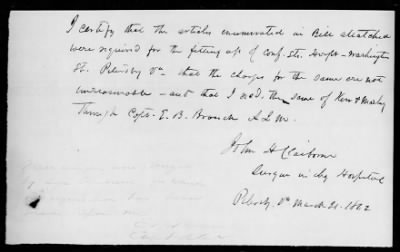 I certify that the articles enumerated in Bill attached
were required for the fitting up of Conf. Sts. Hospt - Washington
St. Petersby Va - that the charges for the same are not
unreasonable - and that I recd. the same of &
Through Capt. E. B. Branch A.Q.M.
John H Claiborne
Surgeon in chg Hospital
Petersbg. Va March 31. 1862